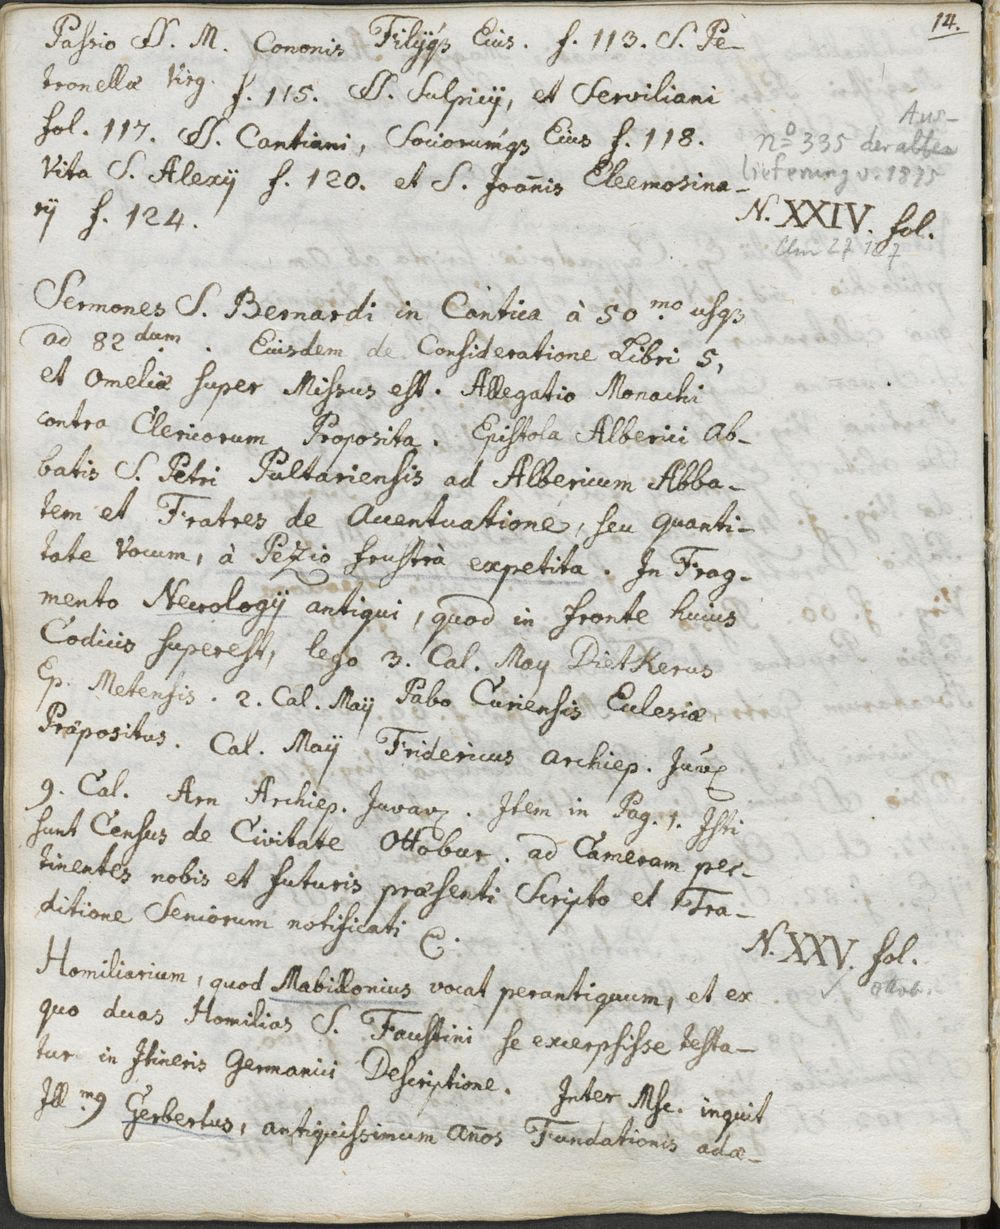 14.
Passio SS. M. Cononis Filyq3 Eius. f. 113. S. Pe-
tronellæ Virg. f. 115. SS. Sulpicij, et Serviliani
fol. 117. SS. Cantiani, Sociorumq3 Eius f. 118.
Vita S. Alexij f. 120. et S. Joan̄is Eleemosina-
rij f. 124.
Aus-
No 335 der alten
lieferung v. 1875
N. XXIV. fol.
Clm 27 107
Sermones S. Bernardi in Cantica à 50mo. usq3
ad 82dum. Eiusdem de Consideratione Libri 5,
et Omeliæ super Missus est. Allegatio Monachi
contra Clericorum Proposita. Epistola Alberici Ab-
batis S. Petri Pultariensis ad Albericum Abba-
tem et Fratres de Accentuatione, seu quanti-
tate Vocum, à Pezio frustrà expetita. In Frag-
mento Necrologij antiqui, quod in fronte huius
Codicis superest, lego 3. Cal. May Dietkerus
Ep. Metensis. 2. Cal. Maij Pabo Curiensis Ecclesiæ
Præpositus. Cal. Maij Fridericus Archiep. Juv.
9. Cal. Arn Archiep. Juvav. Item in Pag. 1. Isti
sunt Census de Civitate Ottobur. ad Cameram per-
tinentes nobis et futuris præsenti Scripto et Tra-
ditione Seniorum notificati
N. XXV. fol.
Ottob.
Homiliarium, quod Mabillonius vocat perantiquum, et ex
quo duas Homilias S. Faustini se excerpsisse testa-
tur in Itineris Germanici Descriptione. Inter Msc. inquit
Ill.m9 Gerbertus, antiquissimum an̄os Fundationis adæ-